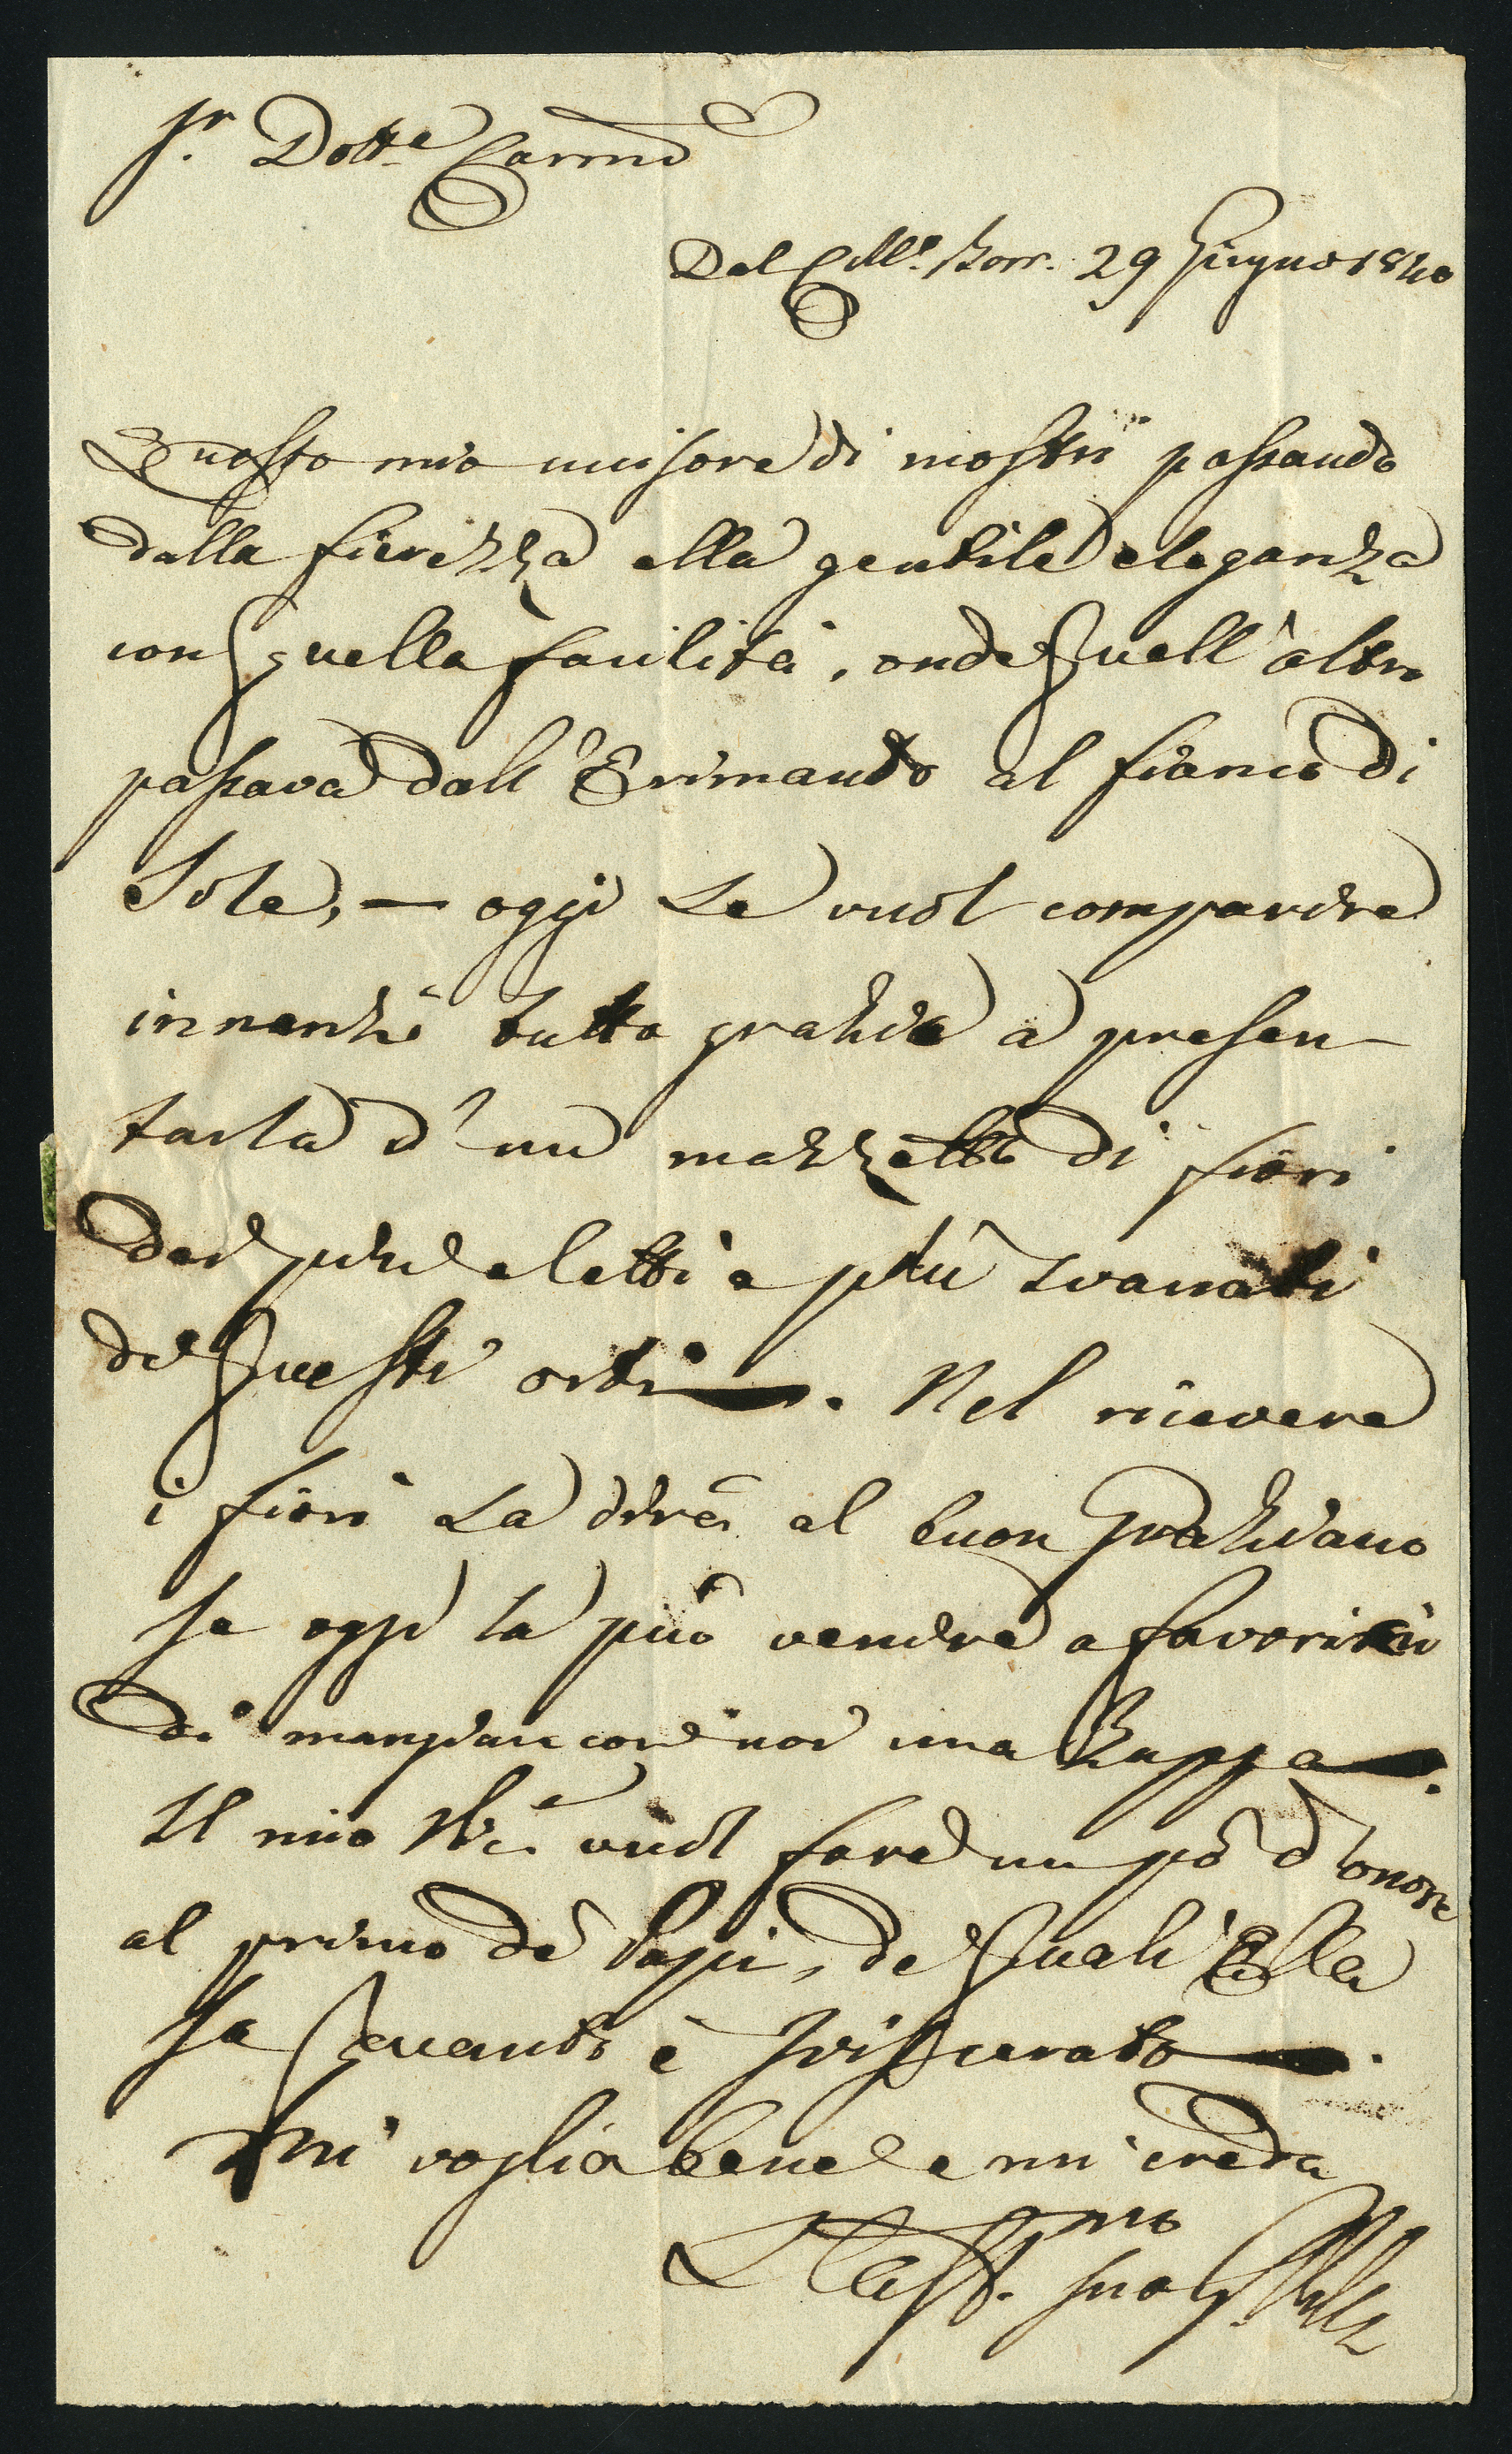 S.r Dott.e Carmo
Dal Coll.o Borr. 29 Giugno 1840
Questo mio uccisore di mostri passando
dalla fierezza alla gentile eleganza
con quella facilità, onde quell'altro
passava dall'Erimanto al fianco di
Iole, — oggi Le vuol comparire
innanzi tutto grazie a presen-
tarla d'un mazzetto di fiori
dei più eletti e più svariati
di questi orti —. Nel ricevere
i fiori La dirà al buon Graziano
se oggi la può venire a favorirci
di mangiare con noi una zuppa —.
Il mio vuol fare un pò d'onore
al primo de' Papi, de' quali Ella
sa quanto è sviscerato —.
Mi voglia bene e mi creda
L'aff.mo suo